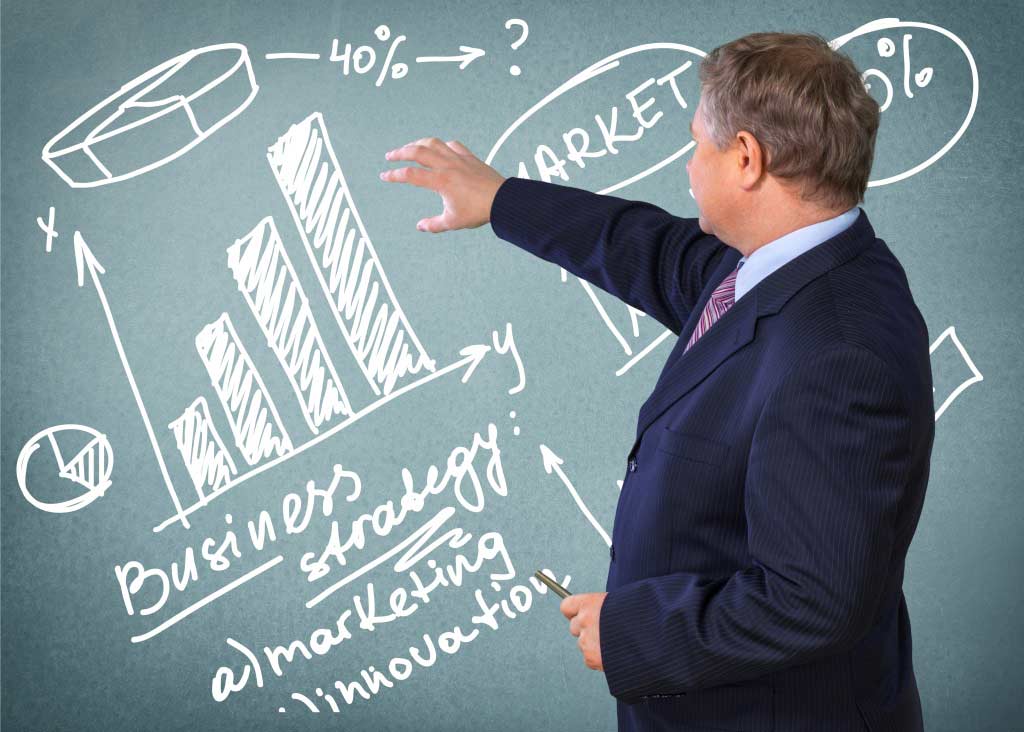 40% → ?
MARKET
0%
x
y
Business
strategy:
a) marketing
) innovation